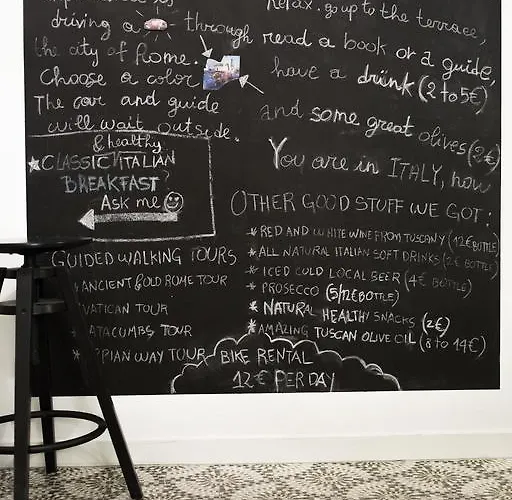 driving a through
the city of Rome.
Choose a color
The car and guide
will wait outside.
& healthy
CLASSIC ITALIAN
BREAKFAST?
Ask me
GUIDED WALKING TOURS
ANCIENT & OLD ROME TOUR
VATICAN TOUR
CATACUMBS TOUR
APPIAN WAY TOUR
Relax. go up to the terrace,
read a book or a guide,
have a drink (2 to 5€)
and some great olives (2€)
You are in ITALY, now
OTHER GOOD STUFF WE GOT:
* RED AND WHITE WINE FROM TUSCANY (12€ BOTTLE)
* ALL NATURAL ITALIAN SOFT DRINKS (2€ BOTTLE)
* ICED COLD LOCAL BEER (4€ BOTTLE)
* PROSECCO (5/12€ BOTTLE)
* NATURAL HEALTHY SNACKS (2€)
* AMAZING TUSCAN OLIVE OIL (8 to 14€)
BIKE RENTAL
12€ PER DAY